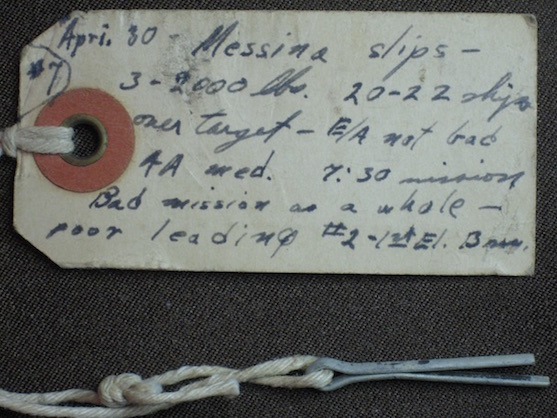 April 30 - Messina slips -
#7
3-2000 lbs. 20-22 ships
over target - E/A not bad
AA med. 7:30 mission
Bad mission as a whole -
poor leading #2-1st El.